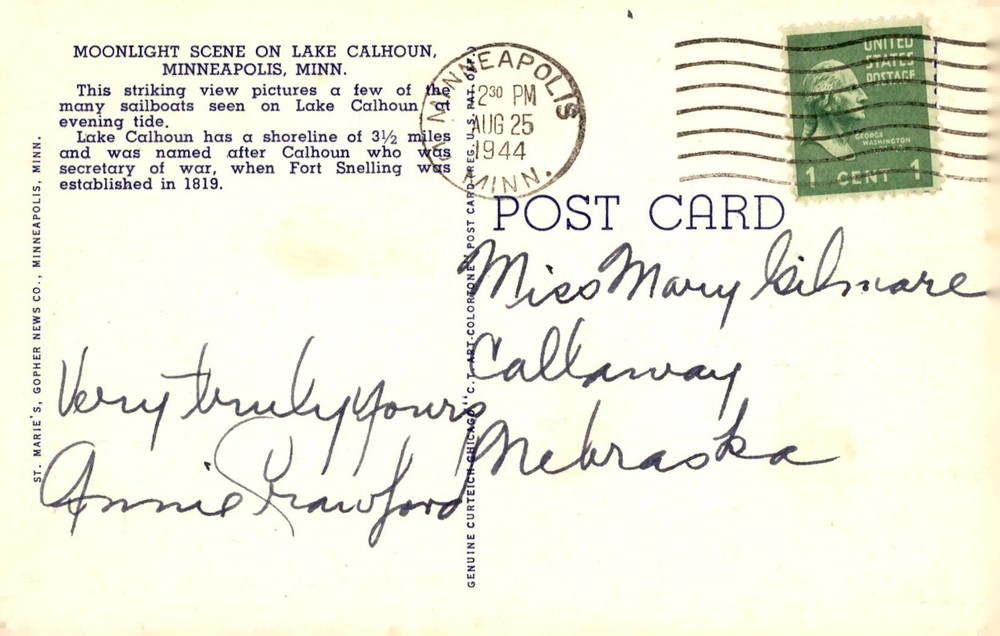 MOONLIGHT SCENE ON LAKE CALHOUN,
MINNEAPOLIS, MINN.
This striking view pictures a few of the
many sailboats seen on Lake Calhoun at
evening tide.
Lake Calhoun has a shoreline of 3½ miles
and was named after Calhoun who was
secretary of war, when Fort Snelling was
established in 1819.
ST. MARIE'S, GOPHER NEWS CO., MINNEAPOLIS, MINN.
Very truly yours
Annie Crawford
GENUINE CURTEICH CHICAGO "C.T. ART-COLORTONE" POST CARD (REG. U.S. PAT. OFF.)
MINNEAPOLIS
2 30 PM
AUG 25
1944
MINN.
UNITED
STATES
POSTAGE
GEORGE
WASHINGTON
1 CENT 1
POST CARD
Miss Mary Gilmore
Callaway
Nebraska